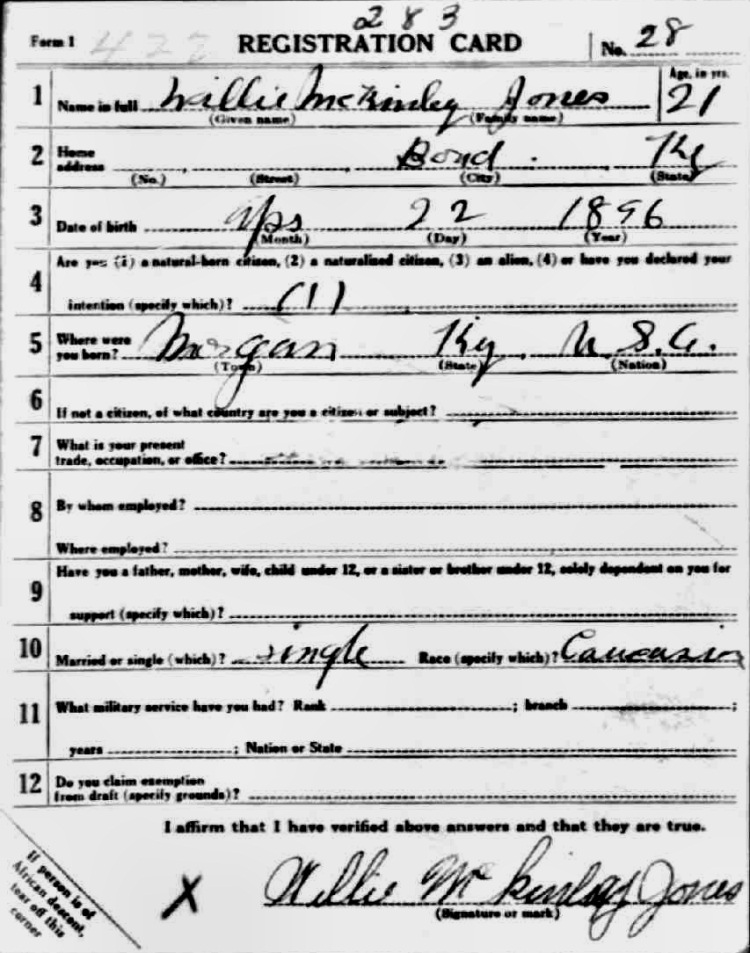 283
Form 1 422 REGISTRATION CARD No. 28
1 Name in full Willie McKinley Jones Age, in yrs. 21
(Given name) (Family name)
2 Home address Bond. Ky
(No.) (Street) (City) (State)
3 Date of birth Aps 22 1896
(Month) (Day) (Year)
4 Are you (1) a natural-born citizen, (2) a naturalized citizen, (3) an alien, (4) or have you declared your
intention (specify which)? (1)
5 Where were you born? Morgan Ky, U.S.A.
(Town) (State) (Nation)
6 If not a citizen, of what country are you a citizen or subject?
7 What is your present
trade, occupation, or office?
8 By whom employed?
Where employed?
9 Have you a father, mother, wife, child under 12, or a sister or brother under 12, solely dependent on you for
support (specify which)?
10 Married or single (which)? single Race (specify which)? Caucasian
11 What military service have you had? Rank ; branch ;
years ; Nation or State
12 Do you claim exemption
from draft (specify grounds)?
I affirm that I have verified above answers and that they are true.
If person is of
African descent,
tear off this
corner
X Willie McKinley Jones
(Signature or mark)